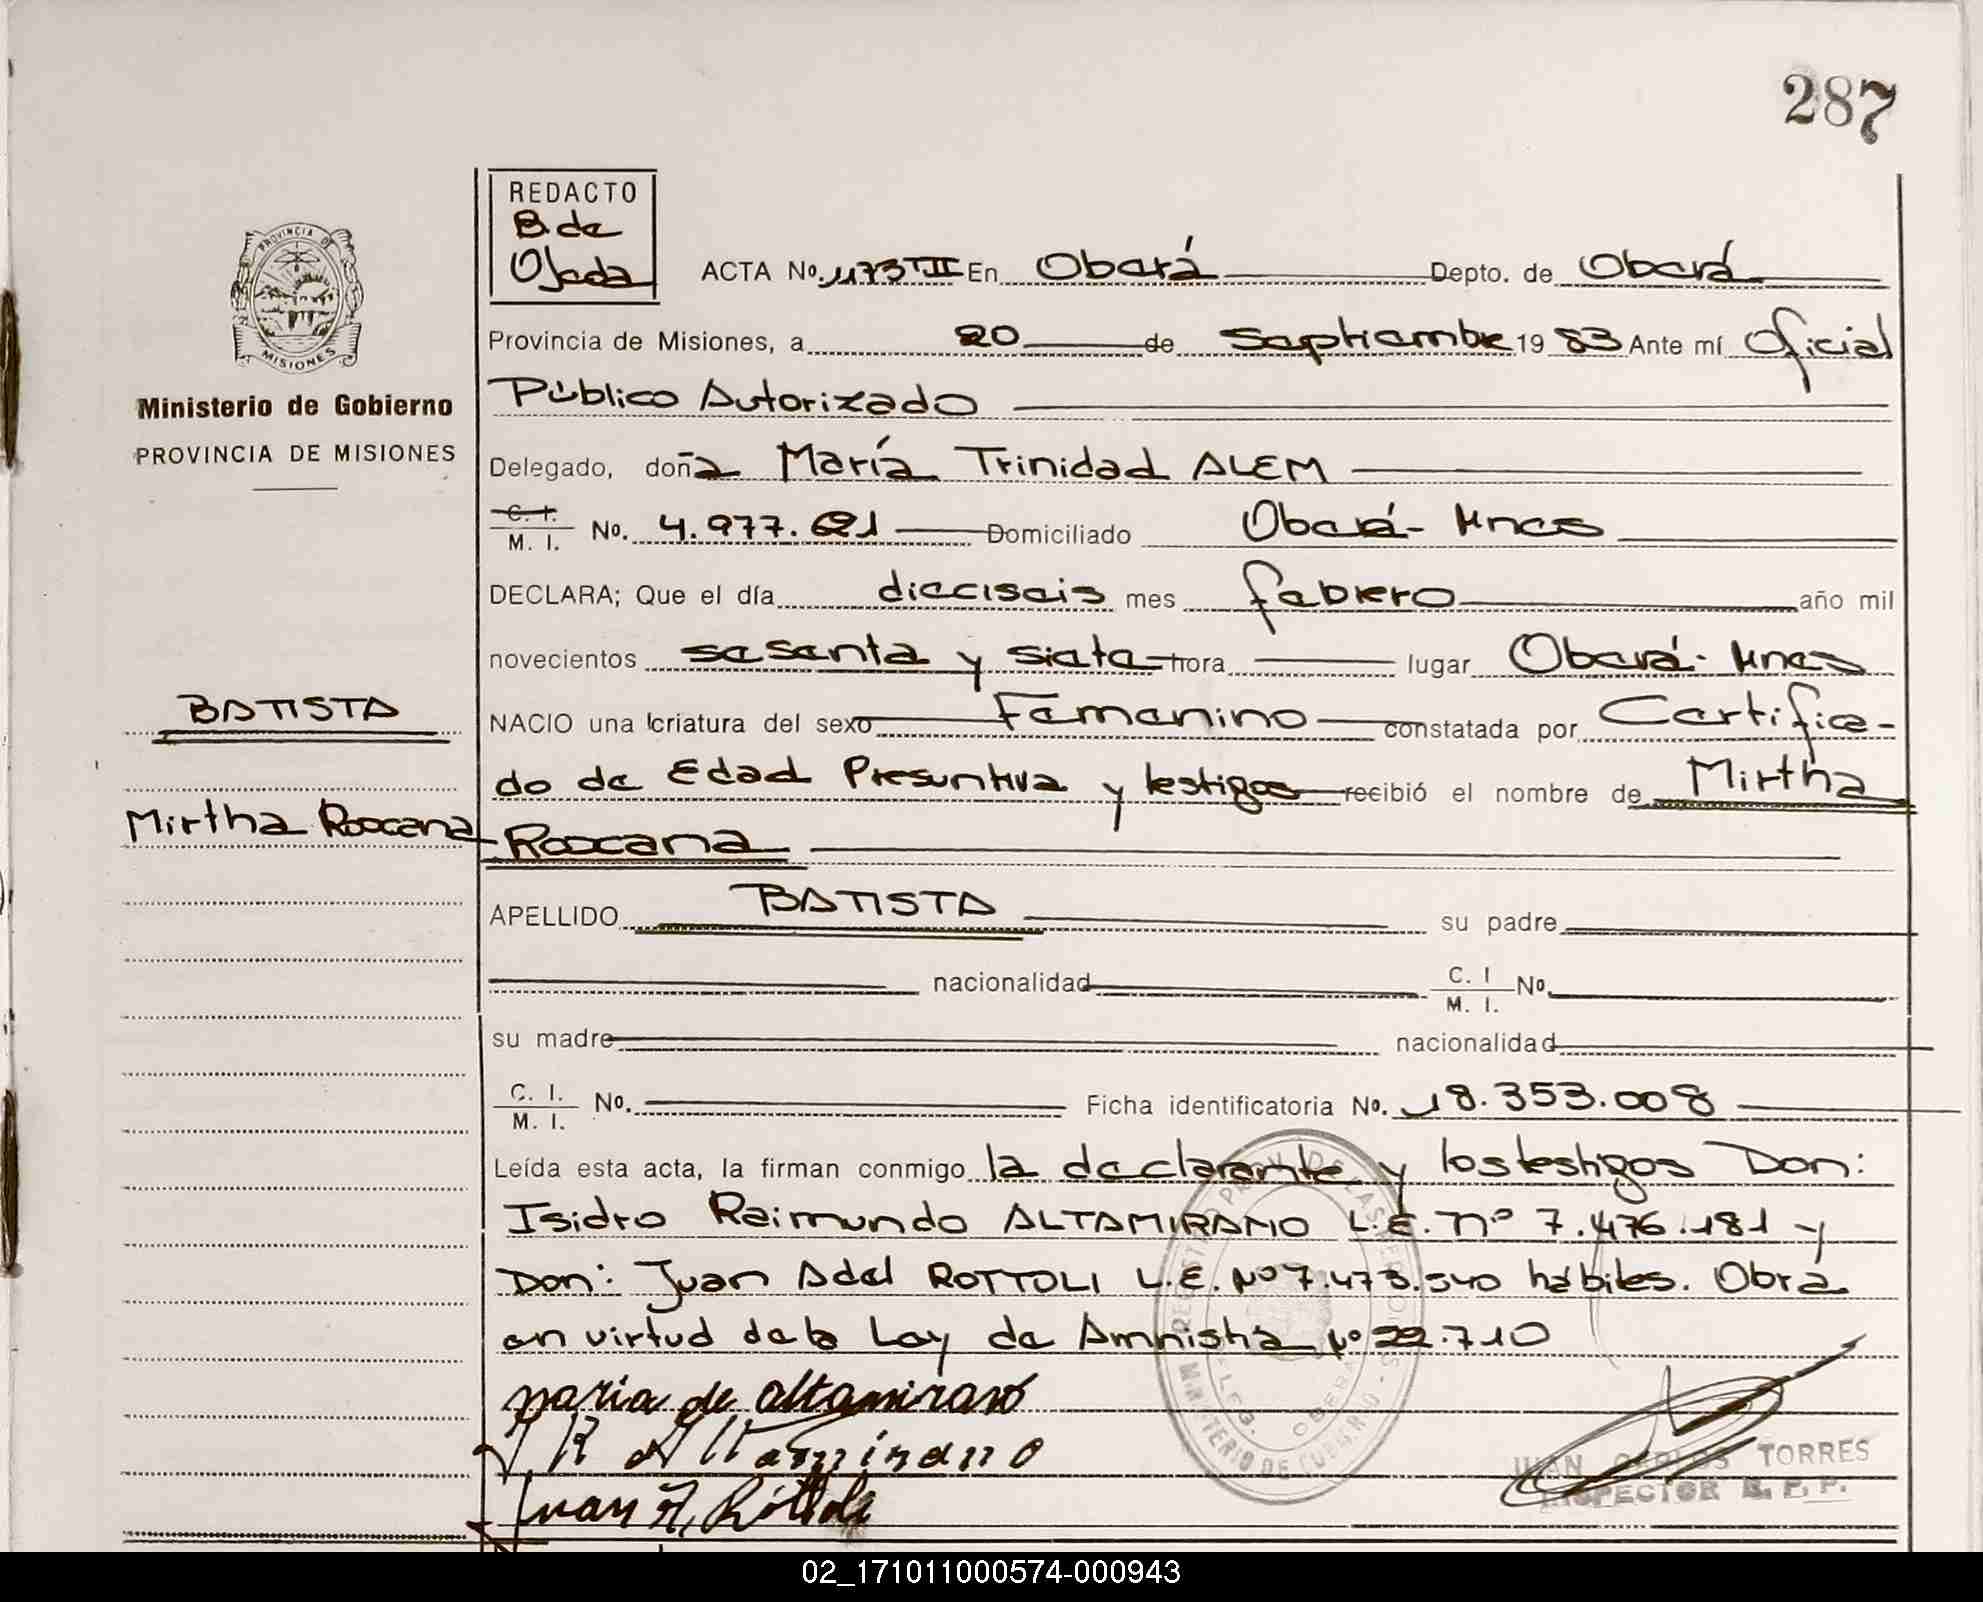 287
REDACTO
B. de
Ojeda
ACTA No. 1173 TIII En Oberá Depto. de Oberá
Provincia de Misiones, a 20 de Septiembre 19 83 Ante mí Oficial
Público Autorizado
Ministerio de Gobierno
PROVINCIA DE MISIONES
Delegado, doña María Trinidad ALEM
C. I. M. I. No. 4.977.621 Domiciliado Oberá- Mnes
DECLARA; Que el día dieciseis mes febrero año mil
novecientos sesenta y siete hora lugar Oberá- Mnes
BATISTA
NACIO una criatura del sexo Femenino constatada por Certifica-
do de Edad Presuntiva y testigos recibió el nombre de Mirtha
Mirtha Roxana
Roxana
APELLIDO BATISTA su padre
nacionalidad C. I M. I. No.
su madre nacionalidad
C. I. M. I. No. Ficha identificatoria No. 18.353.008
Leída esta acta, la firman conmigo la declarante y los testigos Don:
Isidro Raimundo ALTAMIRANO L.E. Nº 7.476.181 y
Don: Juan Adel ROTTOLI L.E. Nº 7.473.540 hábiles. Obra
en virtud de la Ley de Amnistía Nº 22.710
maria de altamirano
I R Altamirano
Juan A. Rottoli
JUAN CARLOS TORRES
INSPECTOR R. P. P.
02_171011000574-000943